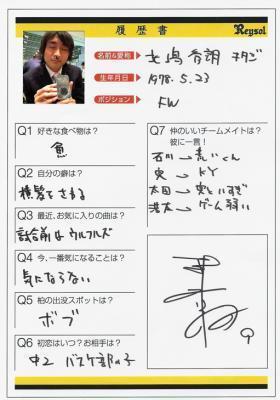 履歴書
Reysol
名前&愛称 北嶋秀朗 キタジ
生年月日 1978.5.23
ポジション FW
Q1 好きな食べ物は?
魚
Q2 自分の癖は?
横髪をさわる
Q3 最近、お気に入りの曲は?
試合前はウルフルズ
Q4 今、一番気になることは?
気にならない
Q5 柏の出没スポットは?
ボブ
Q6 初恋はいつ?お相手は?
中2 バスケ部の子
Q7 仲のいいチームメイトは?
彼に一言!
石川→ 青いくん
→ KY
太田→
浩太→ ゲーム弱い